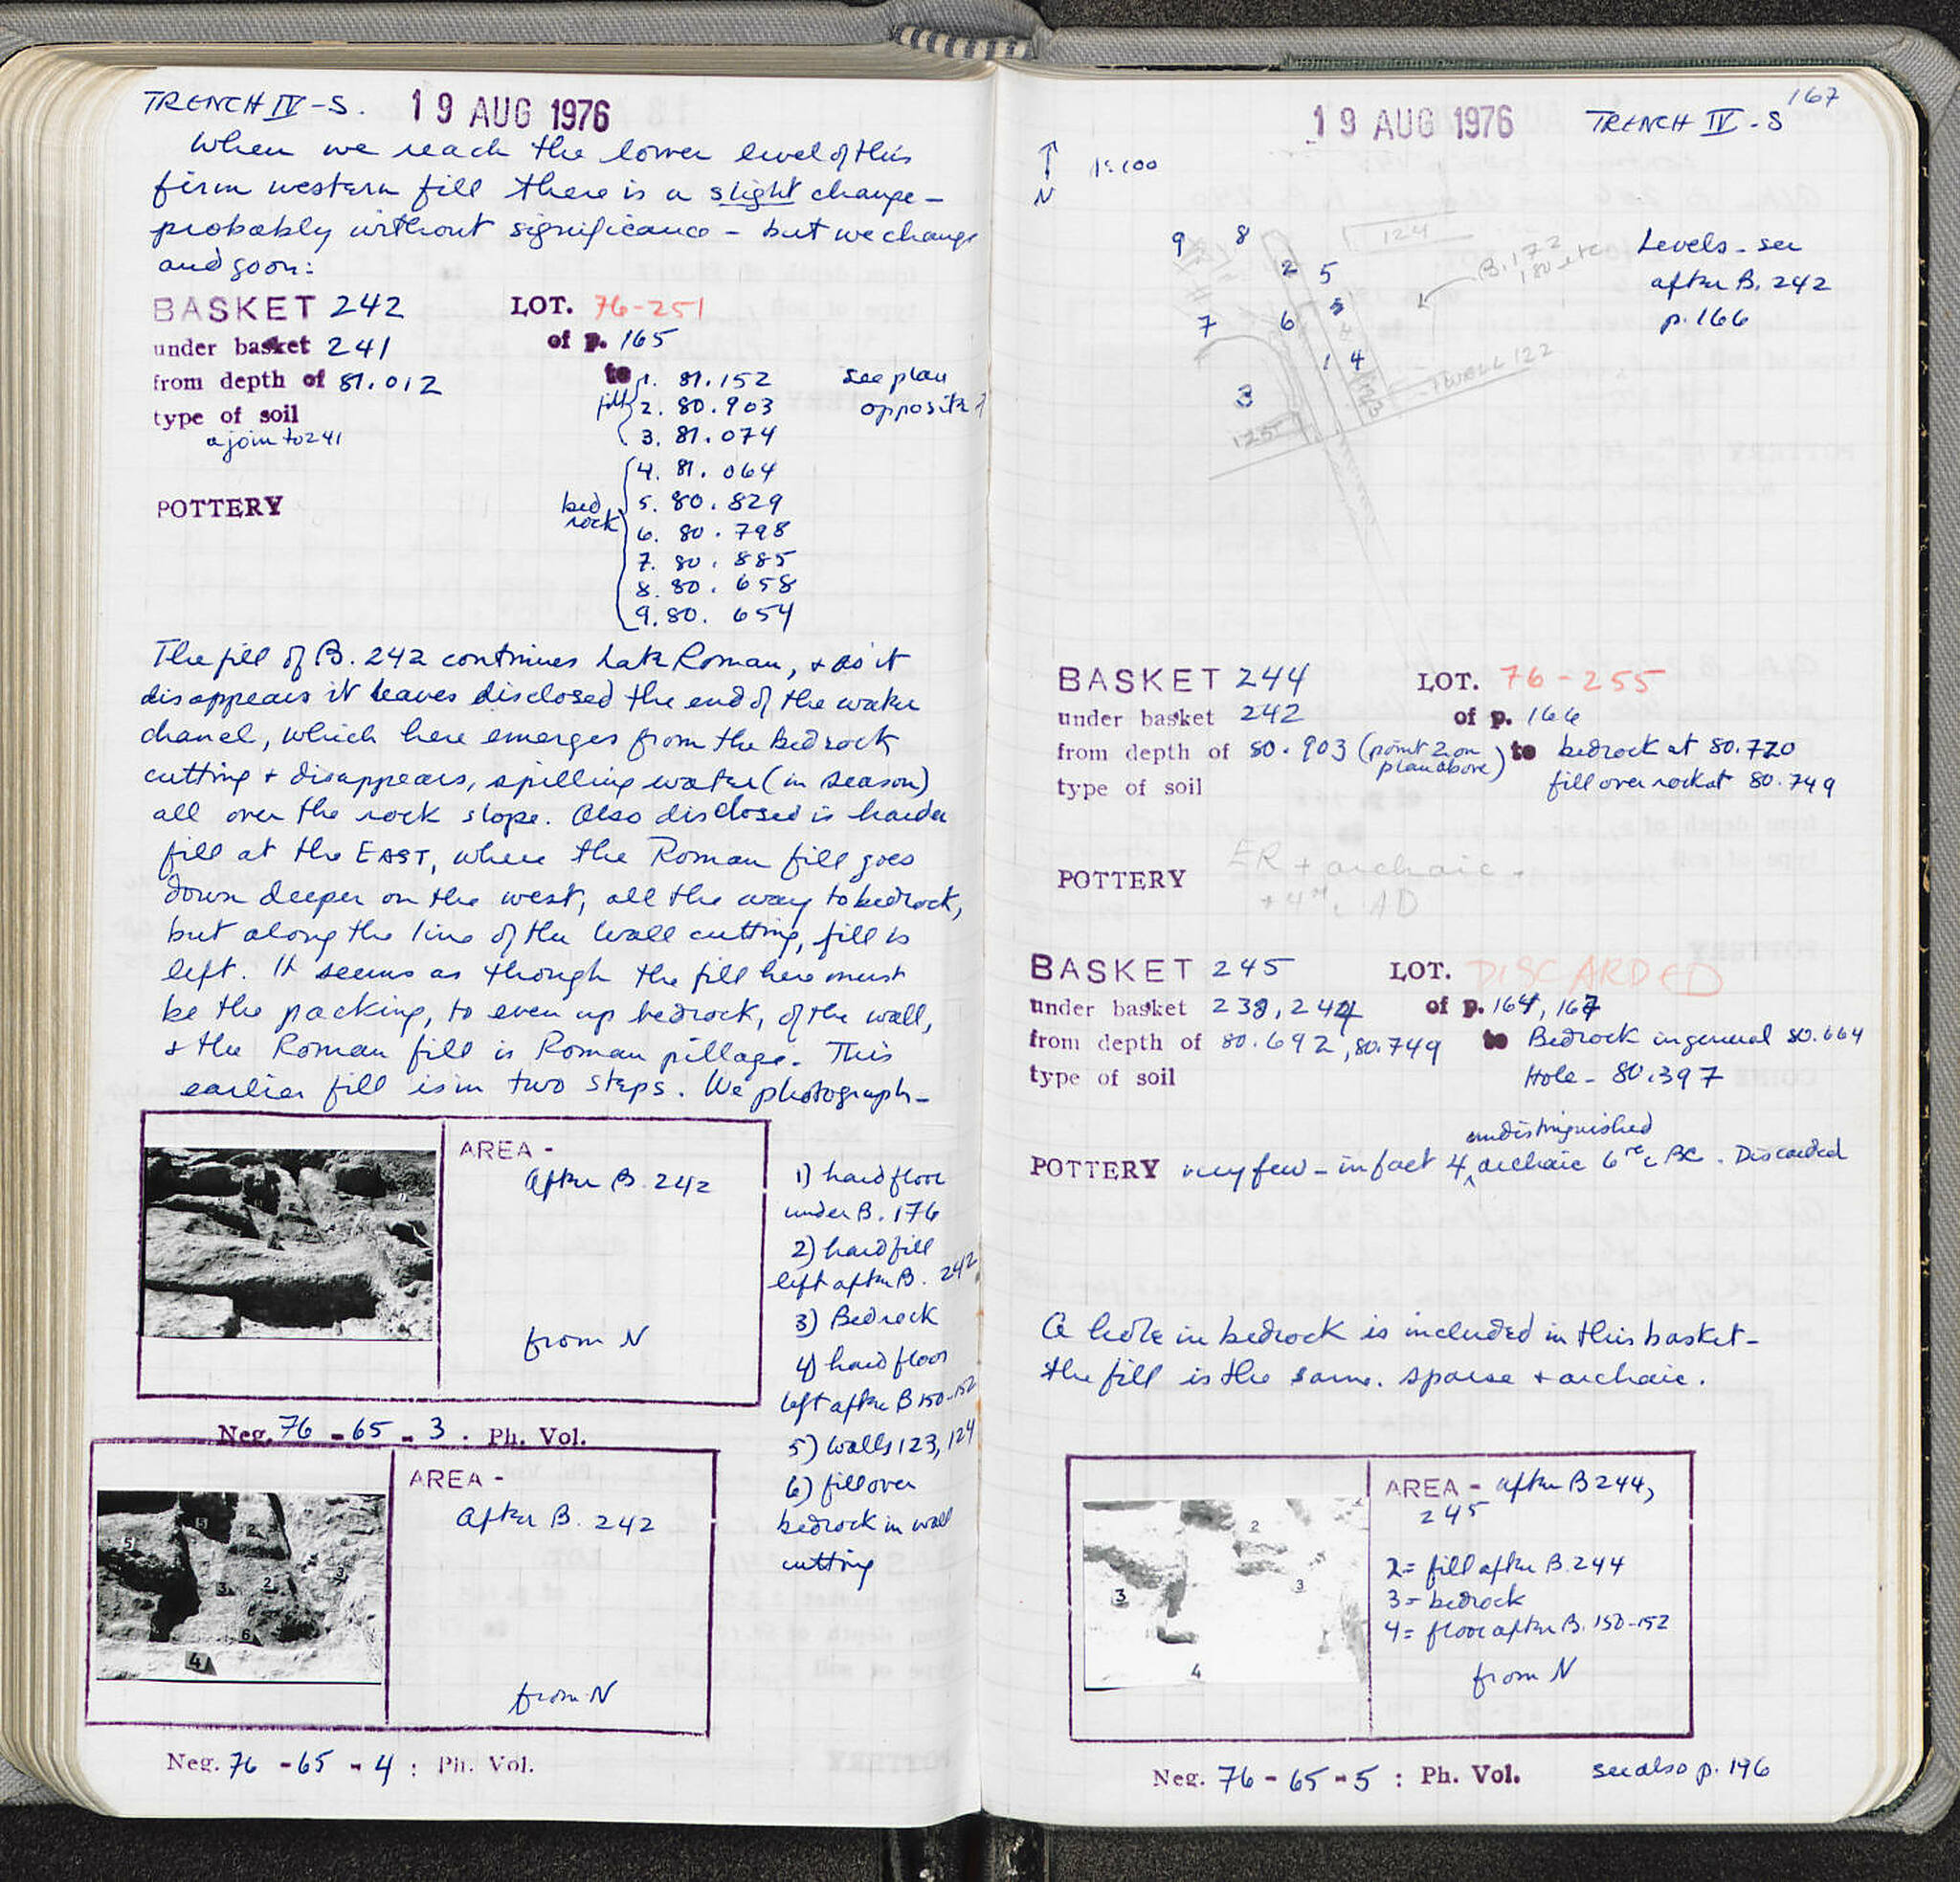 TRENCH IV - S. 19 AUG 1976
When we reach the lower level of this
firm western fill there is a slight change -
probably without significance - but we change
and go on:
BASKET 242 LOT. 76-251
under basket 241 of p. 165
from depth of 81.012 to
type of soil
a join to 241
fill
1. 81.152
2. 80.903
3. 81.074
see plan
opposite
bed
rock
4. 81.064
5. 80.829
6. 80.798
7. 80.885
8. 80.658
9. 80.654
POTTERY
The fill of B. 242 continues Late Roman, + as it
disappears it leaves disclosed the end of the water
chanel, which here emerges from the bedrock
cutting + disappears, spilling water (in season)
all over the rock slope. Also disclosed is harder
fill at the EAST, where the Roman fill goes
down deeper on the west, all the way to bedrock,
but along the line of the wall cutting, fill is
left. It seems as though the fill here must
be the packing, to even up bedrock, of the wall,
& the Roman fill is Roman pillage. This
earlier fill is in two steps. We photograph -
AREA -
After B. 242
from N
Neg. 76 - 65 - 3 : Ph. Vol.
AREA -
After B. 242
from N
Neg. 76 - 65 - 4 : Ph. Vol.
1) hard floor
under B. 176
2) hard fill
left after B. 242
3) Bedrock
4) hard floor
left after B 150-152
5) Walls 123, 124
6) fill over
bedrock in wall
cutting
5
5
2
3
2
3
6
4
167
19 AUG 1976 TRENCH IV - S
N
1:100
9 8 2 5
7 6 3
1 4
3
124
B. 172
180 etc
WELL 122
125
Levels - see
after B. 242
p. 166
BASKET 244 LOT. 76-255
under basket 242 of p. 166
from depth of 80.903 (point 2 on plan above) to bedrock at 80.720
fill over rock at 80.749
type of soil
POTTERY ER + archaic.
+ 4th c AD
BASKET 245 LOT. DISCARDED
under basket 238, 244 of p. 164, 167
from depth of 80.692, 80.749 to Bedrock in general 80.664
type of soil Hole - 80.397
undistinguished
POTTERY very few - in fact 4 archaic 6th c BC. Discarded
A hole in bedrock is included in this basket -
the fill is the same. sparse + archaic.
AREA - After B 244,
245
2 = fill after B. 244
3 = bedrock
4 = floor after B. 150-152
from N
2
3
3
4
Neg. 76 - 65 - 5 : Ph. Vol. see also p. 196